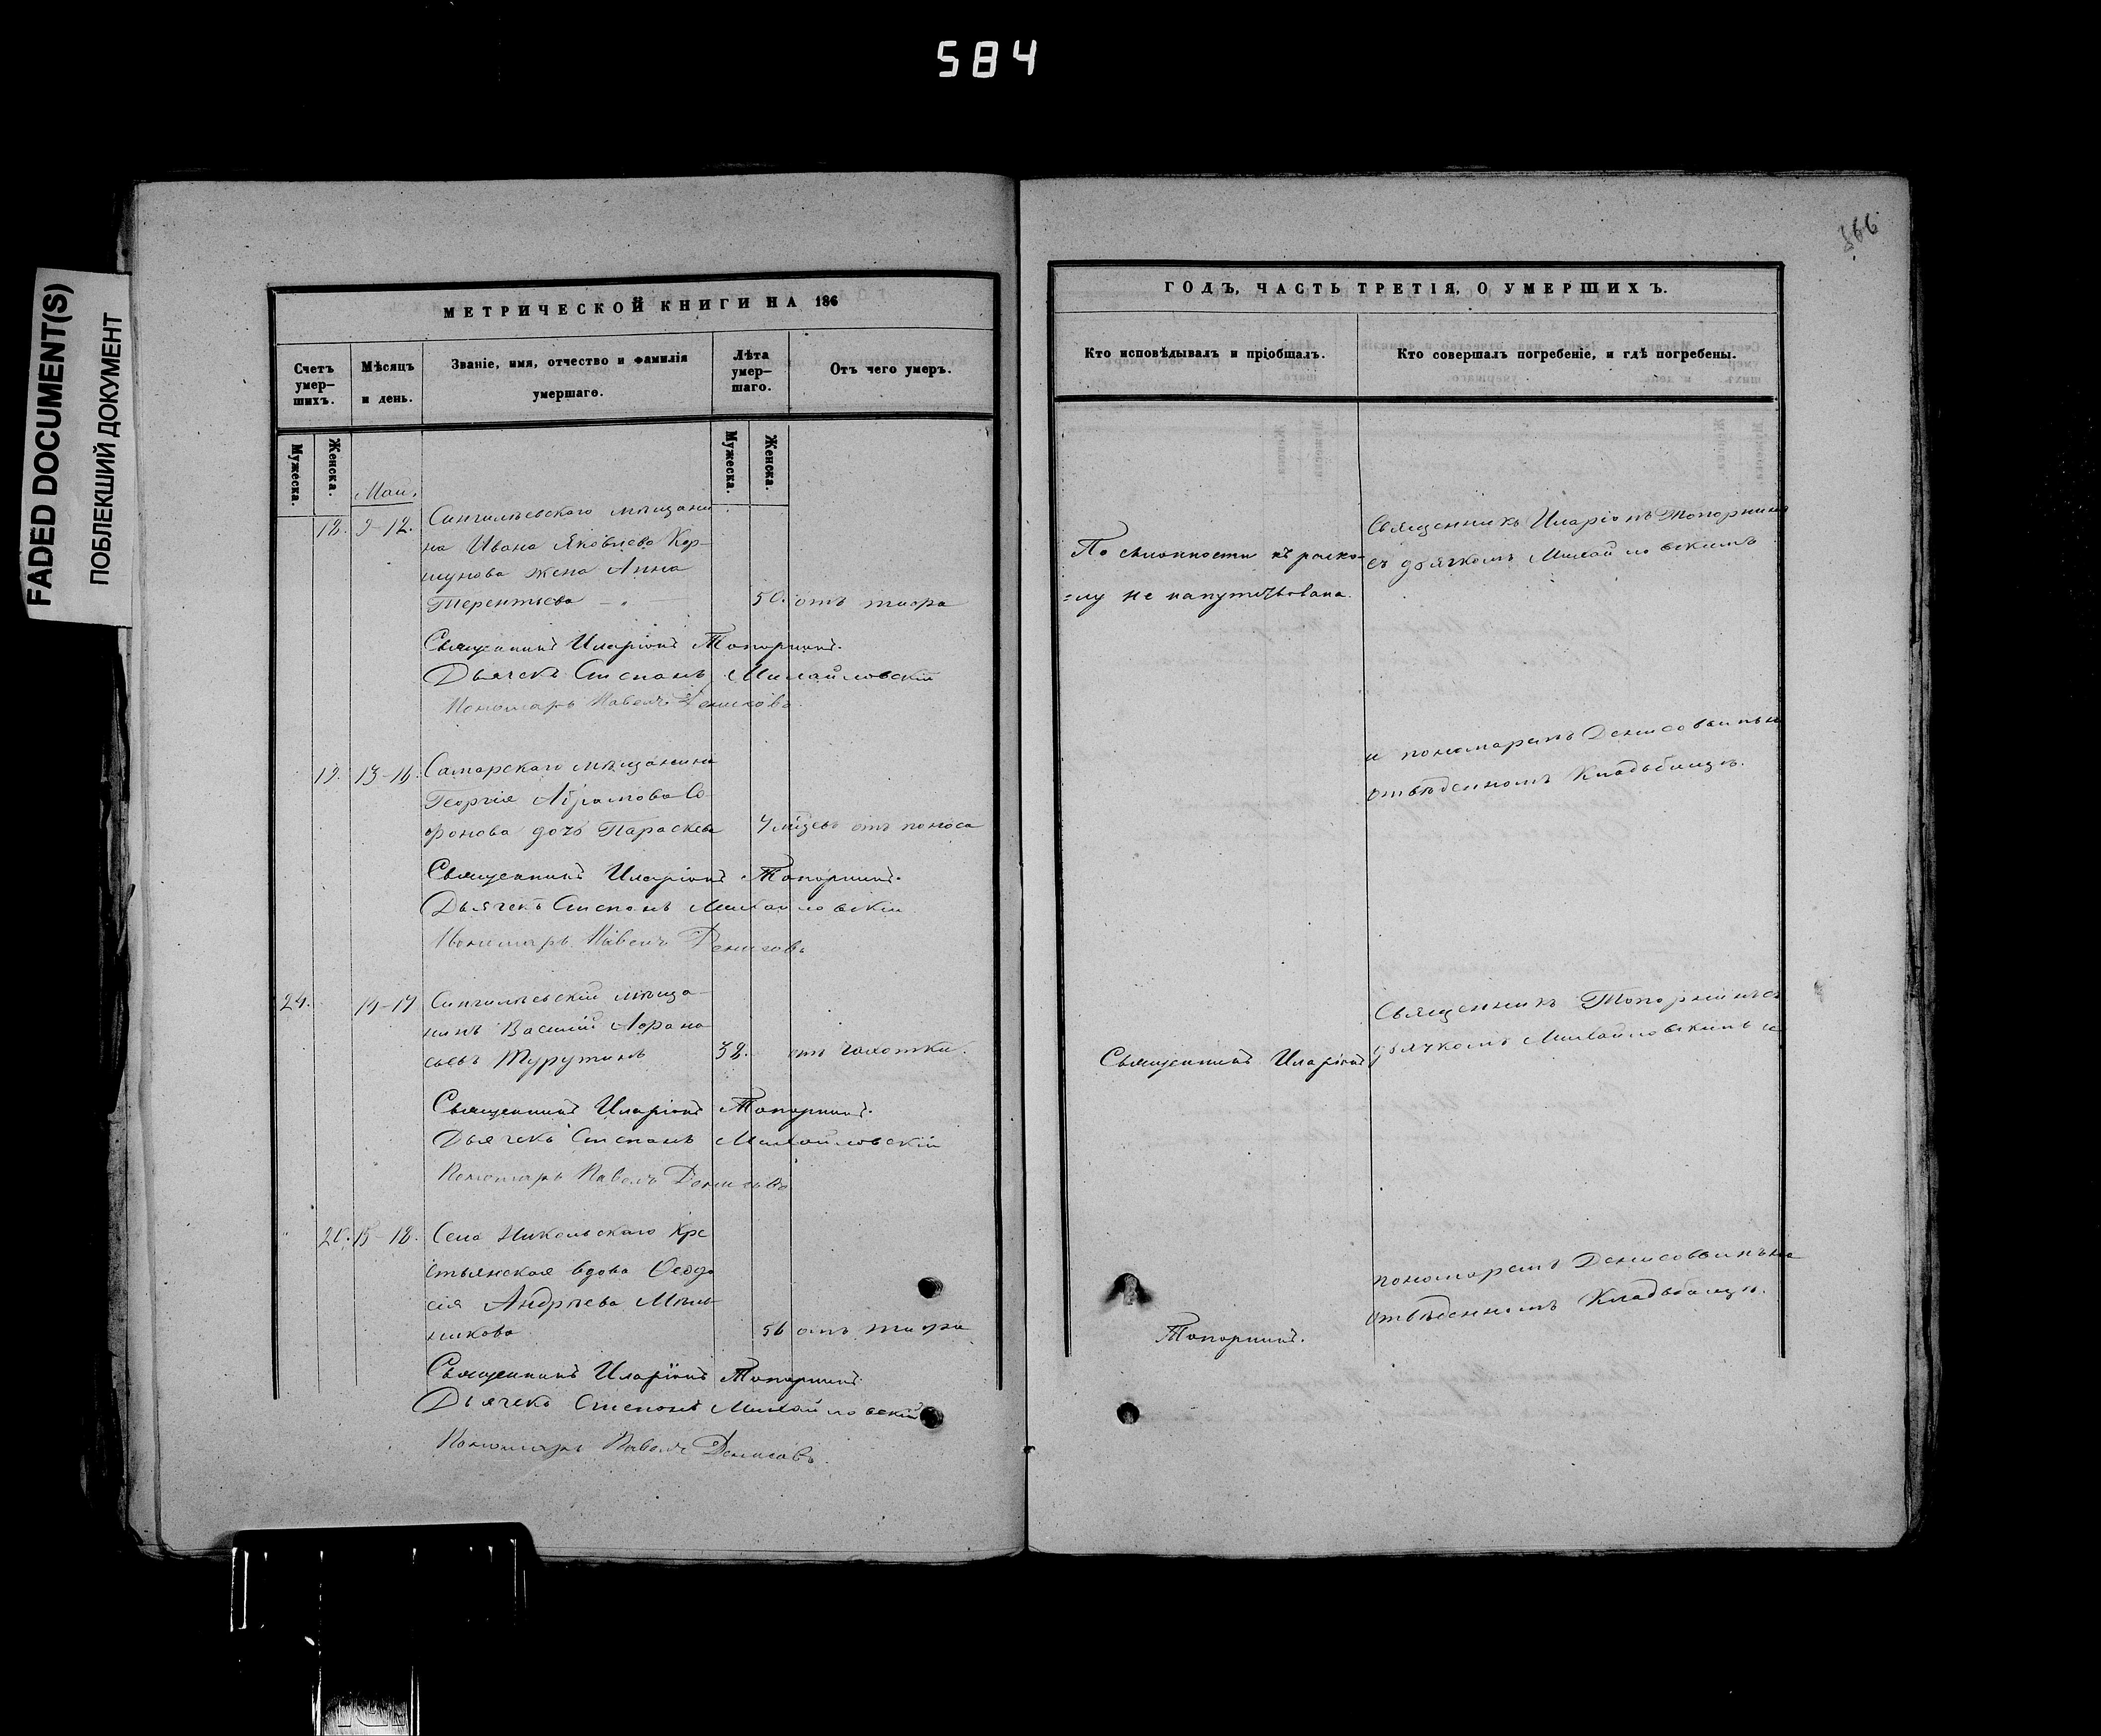 584
FADED DOCUMENT(S)
ПОБЛЕКШИЙ ДОКУМЕНТ
МЕТРИЧЕСКОЙ КНИГИ НА 186
Счетъ умер-шихъ.
Мѣсяцъ и день.
Званіе, имя, отчество и фамилія умершаго.
Лѣта умер-шаго.
Отъ чего умеръ.
Мужеска.
Женска.
Мужеска.
Женска.
Май.
18. 9-12. Сингилѣевскаго мѣщани
на Ивана Яковлева Кор-
шунова жена Анна
Терентьева 50. отъ тифа
Священникъ Иларіонъ Топорнинъ.
Дьячекъ Стспанъ Михайловскій
Пономарь Павелъ Денисовъ
19. 13-16. Самарскаго мѣщанина
Георгія Абрамова Со-
фонова дочь Параскева 4 мѣсцевъ отъ поноса
Священникъ Иларіонъ Топорнинъ.
Дьячекъ Стспанъ Михайловскій
Пономарь Павелъ Денисовъ
24. 14-17 Сингилѣевскій мѣща-
нинъ Василій Афана
сьевъ Турутинъ 38. отъ чахотки.
Священникъ Иларіонъ Топорнинъ.
Дьячекъ Стспанъ Михайловскій
Пономарь Павелъ Денисовъ
20. 15-18. Села Никольскаго Кре
стьянская вдова Ѳеодо
сія Андрѣева Мѣль-
никова 56 отъ тифа
Священникъ Иларіонъ Топорнинъ
Дьячекъ Стспанъ Михайловскій
Пономарь Павелъ Денисовъ.
366
ГОДЪ, ЧАСТЬ ТРЕТІЯ, О УМЕРШИХЪ.
Кто исповѣдывалъ и пріобщалъ.
Кто совершалъ погребеніе, и гдѣ погребены.
По склонности къ раско-
=лу не напутствована.
Священникъ Иларіонъ Топорнинъ
съ дьячкомъ Михайловскимъ
и пономаремъ Денисовымъ на
отвѣденномъ Кладьбищѣ.
Священникъ Иларіонъ
Топорнинъ.
Священникъ Топорнинъ съ
дьячкомъ Михайловскимъ и
пономаремъ Денисовымъ на
отвѣденномъ Кладьбищѣ.